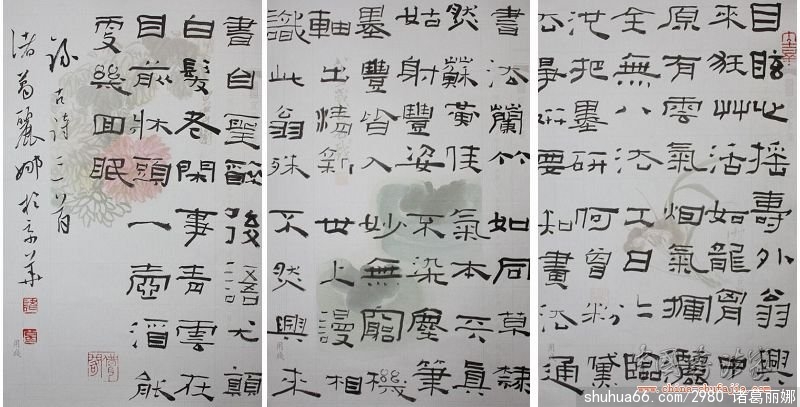 目眩心搖壽外翁興
來狂艸活如龍胷中
原有雲氣烟氣揮灑
全無八法工日二臨
池把墨研何曾粉黛
去尋妍要知畫法通
書法蘭竹如同草隸
然蘇黃佳氣本天真
姑射豐姿不染塵筆
墨豐皆入妙無窮機
軸出清新世上謾相
識此翁殊不然興來
書自聖醉後語尤顛
白髮老閑事青雲在
目前牀頭一壺酒能
更幾回眠
錄古詩二首
諸葛麗娜於京華
shuhua66.com/2980 诸葛丽娜